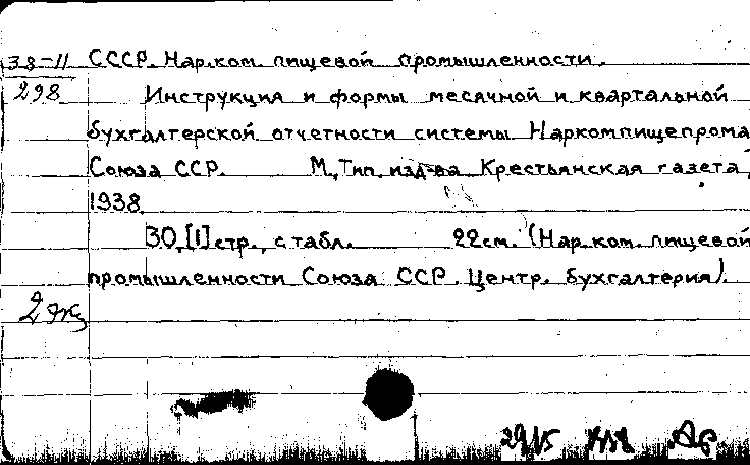 38-11 СССР. Нар.ком. пищевой промышленности.
298 Инструкция и формы месячной и квартальной
бухгалтерской отчетности системы Наркомпищепрома
Союза ССР. М., Тип. изд-ва Крестьянская газета,
1938.
30, [1] стр., с табл. 22 см. (Нар.ком. пищевой
промышленности Союза ССР. Центр. бухгалтерия).
2 экз